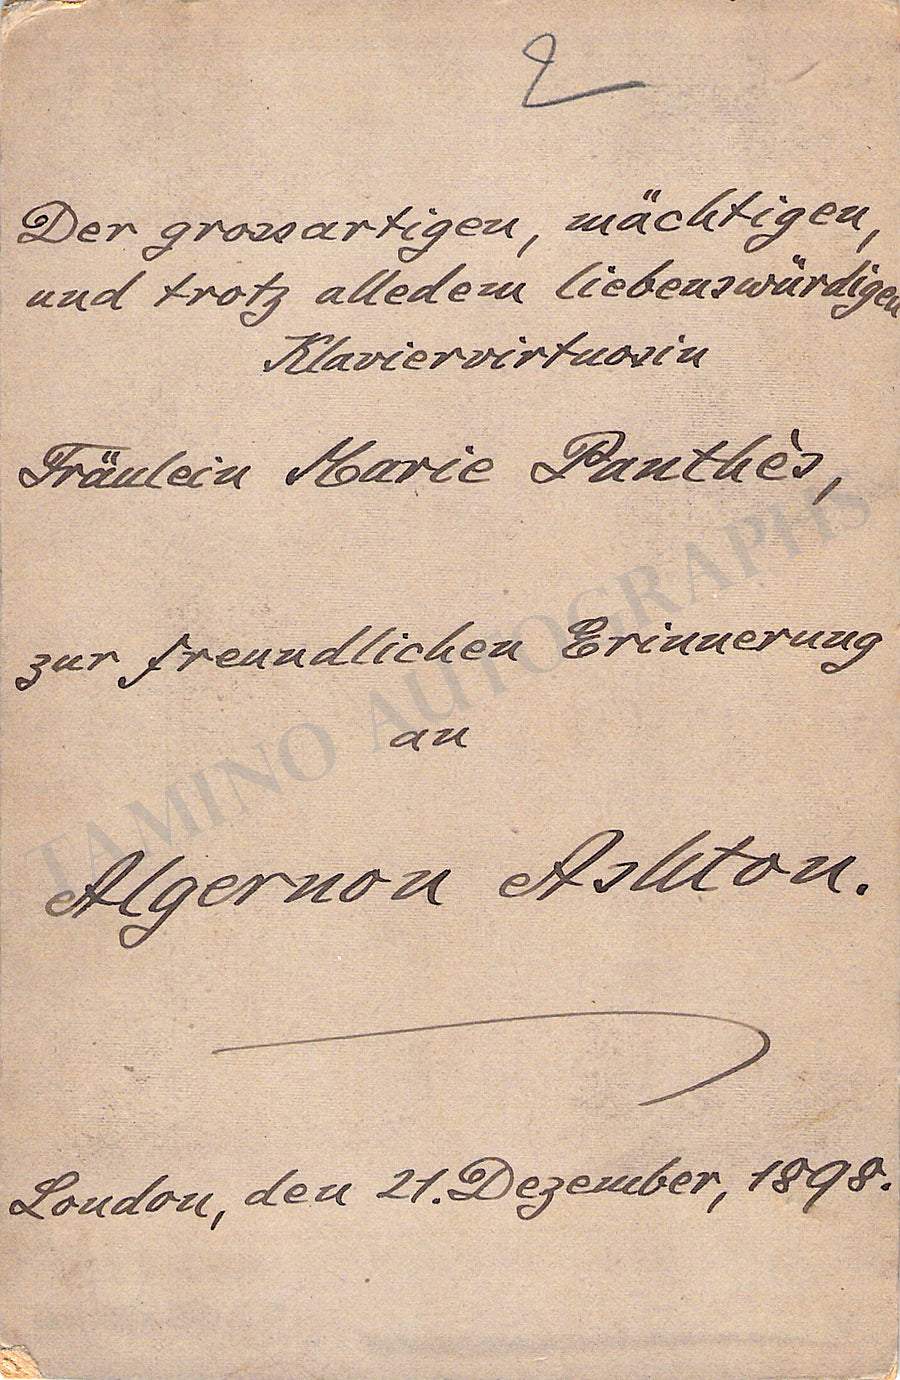 2
Der grossartigen, mächtigen,
und trotz alledem liebenswürdigen
Klaviervirtuosin
Fräulein Marie Panthès,
zur freundlichen Erinnerung
an
Algernon Ashton.
London, den 21. Dezember, 1898.
TAMINO AUTOGRAPHS